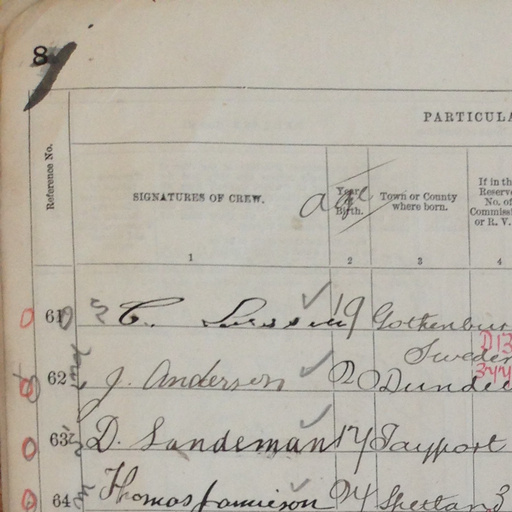 8
PARTICULA
Reference No.
SIGNATURES OF CREW.
age
Year
Birth.
Town or County
where born.
If in the
Reserve
No. of
Commissi
or R. V.
1 2 3 4
0 61 C. 19 Gothenbur
Sweden
62 J. Anderson 20 Dundee
0 63 D. Sandeman 17 Tayport
0 64 Thomas Jamieson 24 Shetland